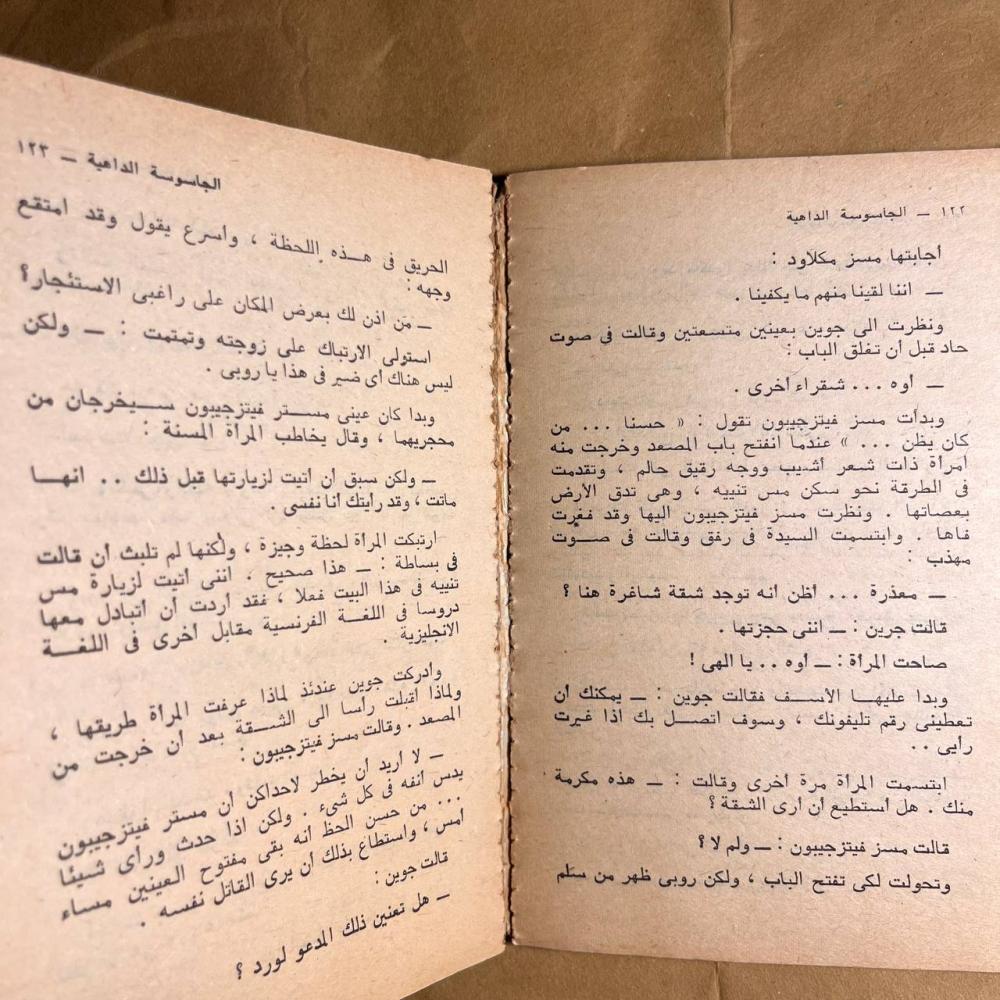 ١٢٢ — الجاسوسة الداهية
أجابتها مسز مكلاود :
— اننا لقينا منهم ما يكفينا .
ونظرت الى جوين بعينين متسعتين وقالت فى صوت
حاد قبل أن تغلق الباب :
— أوه ... شقراء أخرى .
وبدأت مسز فيتزجيبون تقول : « حسنا ... من
كان يظن ... » عندما انفتح باب المصعد وخرجت منه
امرأة ذات شعر أشيب ووجه رقيق حالم ، وتقدمت
فى الطرقة نحو سكن مس تنييه ، وهى تدق الأرض
بعصاتها . ونظرت مسز فيتزجيبون اليها وقد فغرت
فاها . وابتسمت السيدة فى رفق وقالت فى صوت
مهذب :
— معذرة ... أظن أنه توجد شقة شاغرة هنا ؟
قالت جرين : — اننى حجزتها .
صاحت المرأة : — أوه .. يا الهى !
وبدا عليها الأسف فقالت جوين : — يمكنك أن
تعطينى رقم تليفونك ، وسوف اتصل بك اذا غيرت
رأيى ..
ابتسمت المرأة مرة أخرى وقالت : — هذه مكرمة
منك . هل أستطيع أن أرى الشقة ؟
قالت مسز فيتزجيبون : — ولم لا ؟
وتحولت لكى تفتح الباب ، ولكن روبى ظهر من سلم
الجاسوسة الداهية — ١٢٣
الحريق فى هذه اللحظة ، واسرع يقول وقد امتقع
وجهه :
— من اذن لك بعرض المكان على راغبى الاستئجار؟
استولى الارتباك على زوجته وتمتمت : — ولكن
ليس هناك أى ضير فى هذا يا روبى .
وبدا كأن عينى مستر فيتزجيبون سيخرجان من
محجريهما ، وقال يخاطب المرأة المسنة :
— ولكن سبق أن أتيت لزيارتها قبل ذلك .. انها
ماتت ، وقد رأيتك أنا نفسى .
ارتبكت المرأة لحظة وجيزة ، ولكنها لم تلبث أن قالت
فى بساطة : — هذا صحيح . اننى أتيت لزيارة مس
تنييه فى هذا البيت فعلا ، فقد أردت أن أتبادل معها
دروسا فى اللغة الفرنسية مقابل أخرى فى اللغة
الانجليزية .
وأدركت جوين عندئذ لماذا عرفت المرأة طريقها ،
ولماذا أقبلت رأسا الى الشقة بعد أن خرجت من
المصعد . وقالت مسز فيتزجيبون :
— لا أريد أن يخطر لاحداكن أن مستر فيتزجيبون
يدس أنفه فى كل شىء . ولكن اذا حدث ورأى شيئا
... من حسن الحظ أنه بقى مفتوح العينين مساء
أمس ، واستطاع بذلك أن يرى القاتل نفسه .
قالت جوين :
— هل تعنين ذلك المدعو لورد ؟